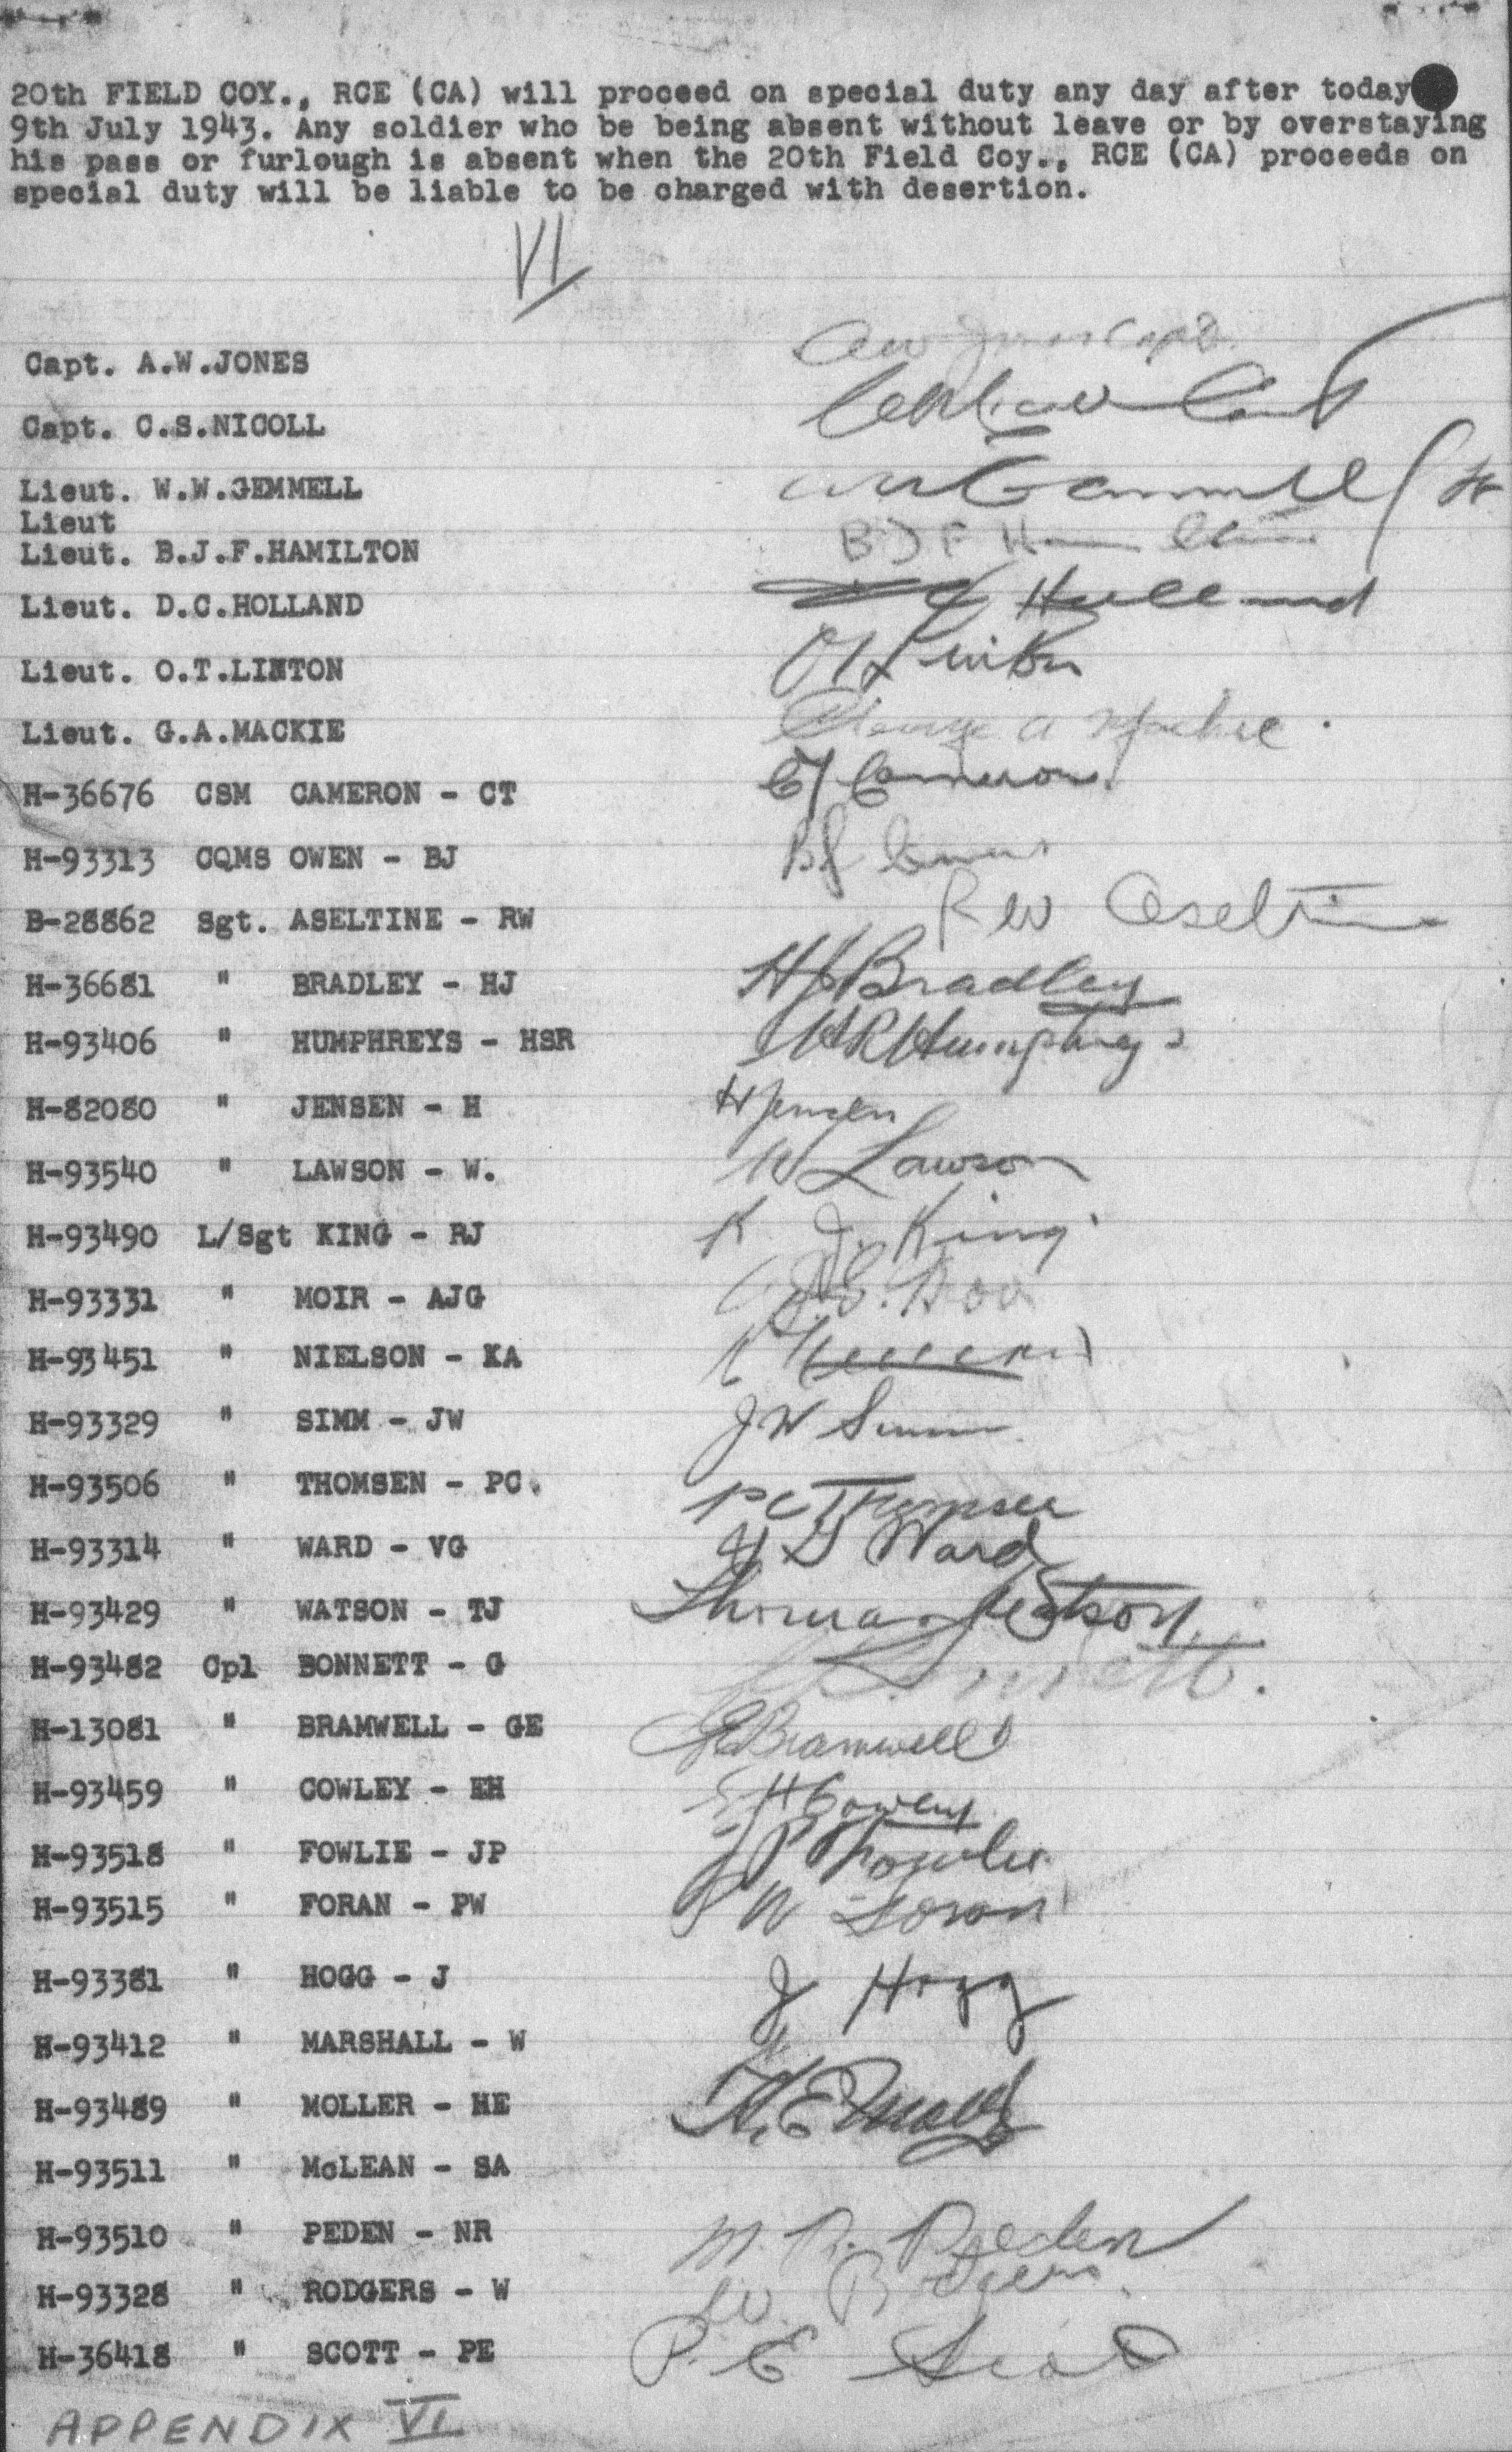 20th FIELD COY., RCE (CA) will proceed on special duty any day after today
9th July 1943. Any soldier who be being absent without leave or by overstaying
his pass or furlough is absent when the 20th Field Coy., RCE (CA) proceeds on
special duty will be liable to be charged with desertion.
VI
Capt. A.W.JONES
Capt. C.S.NICOLL
Lieut. W.W.GEMMELL
Lieut
Lieut. B.J.F.HAMILTON B J F Hamilton
Lieut. D.C.HOLLAND Holland
Lieut. O.T.LINTON OT Linton
Lieut. G.A.MACKIE George A Mackie.
H-36676 CSM CAMERON - CT CT Cameron.
H-93313 CQMS OWEN - BJ BJ Owen
B-28862 Sgt. ASELTINE - RW RW Aseltine
H-36681 " BRADLEY - HJ HJ Bradley
H-93406 " HUMPHREYS - HSR Humphreys
H-82080 " JENSEN - H H Jensen
H-93540 " LAWSON - W. W Lawson
H-93490 L/Sgt KING - RJ R J. King
H-93331 " MOIR - AJG
H-93451 " NIELSON - KA
H-93329 " SIMM - JW JW Simm
H-93506 " THOMSEN - PC. PC Thomsen
H-93314 " WARD - VG V G Ward
H-93429 " WATSON - TJ Thomas J Watson
H-93482 Cpl BONNETT - G Bonnett.
H-13081 " BRAMWELL - GE GE Bramwell
H-93459 " COWLEY - EH EH Cowley
H-93518 " FOWLIE - JP JP Fowlie
H-93515 " FORAN - PW P W Foran
H-93381 " HOGG - J J Hogg
H-93412 " MARSHALL - W
H-93489 " MOLLER - HE H.E Moller
H-93511 " McLEAN - SA
H-93510 " PEDEN - NR N. R. Peden
H-93328 " RODGERS - W W. Rodgers.
H-36418 " SCOTT - PE P. E Scott
APPENDIX VI